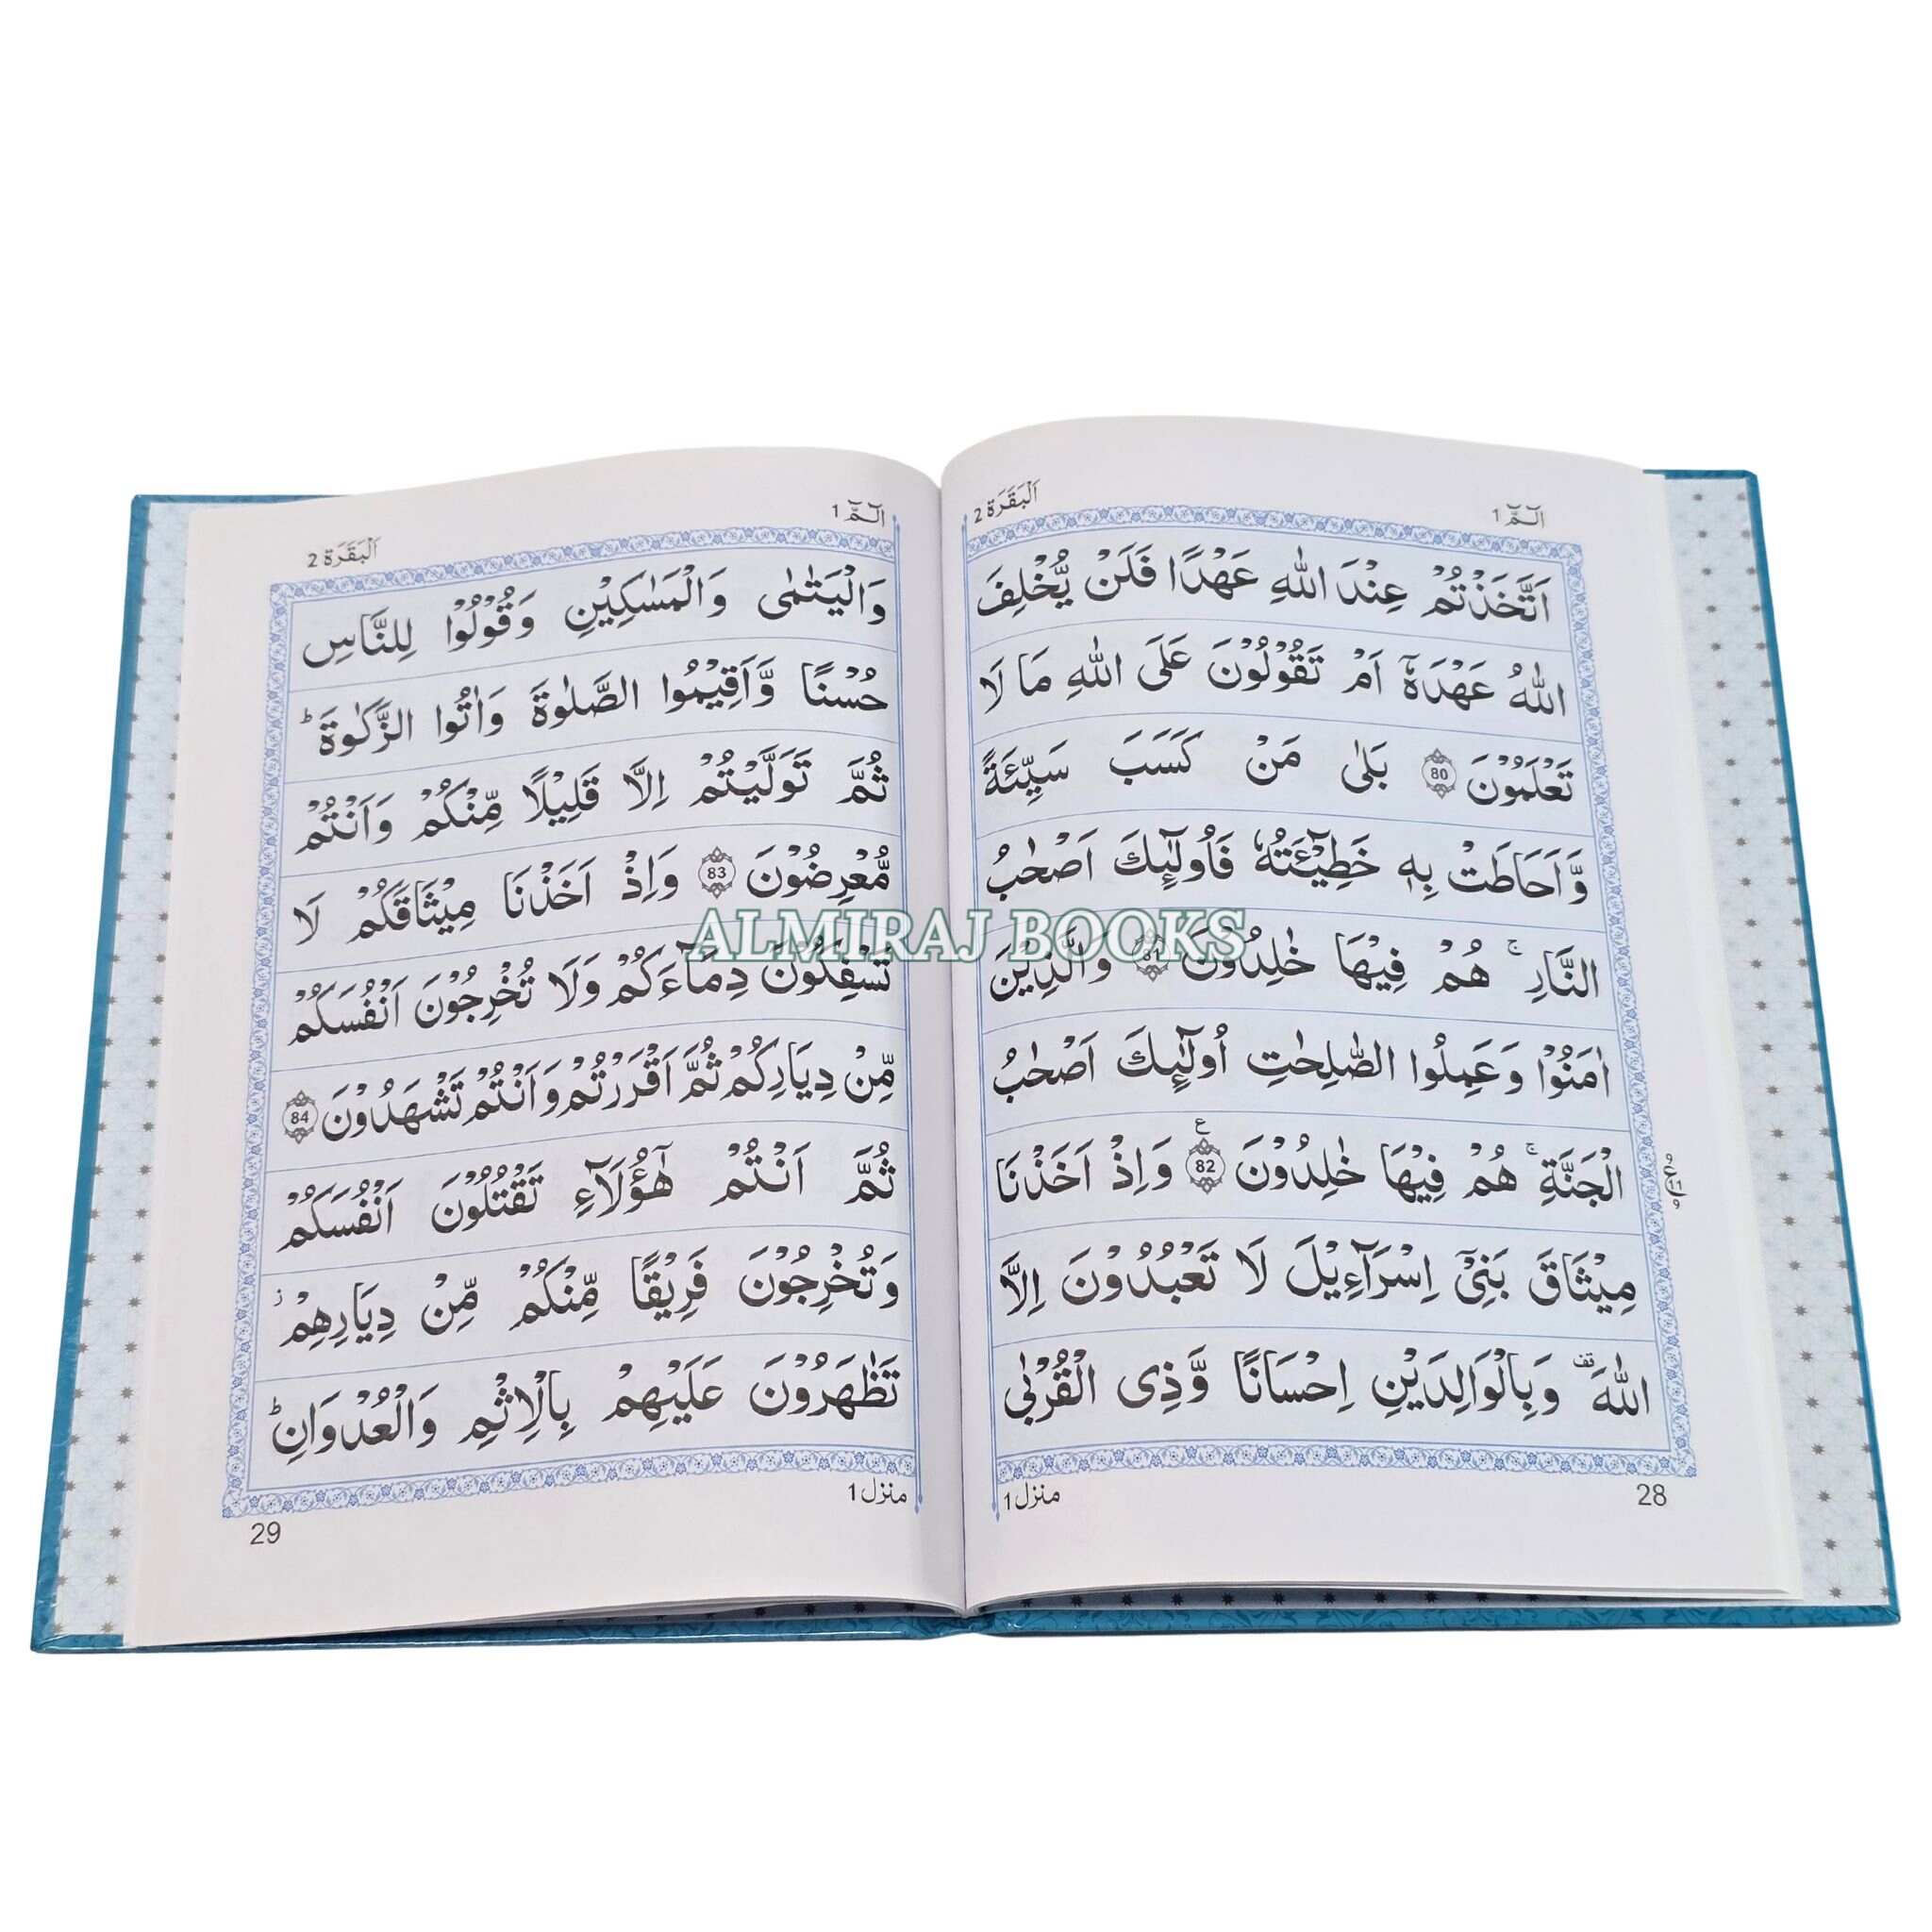 الٓمّٓ 1
اَلْبَقَرَة 2
اَتَّخَذْتُمْ عِنْدَ اللّٰهِ عَهْدًا فَلَنْ يُّخْلِفَ
اللّٰهُ عَهْدَهٗٓ اَمْ تَقُوْلُوْنَ عَلَى اللّٰهِ مَا لَا
تَعْلَمُوْنَ 80 بَلٰى مَنْ كَسَبَ سَيِّئَةً
وَّاَحَاطَتْ بِهٖ خَطِيْٓئَتُهٗ فَاُولٰٓئِكَ اَصْحٰبُ
النَّارِ ۚ هُمْ فِيْهَا خٰلِدُوْنَ 81 وَالَّذِيْنَ
اٰمَنُوْا وَعَمِلُوا الصّٰلِحٰتِ اُولٰٓئِكَ اَصْحٰبُ
الْجَنَّةِ ۚ هُمْ فِيْهَا خٰلِدُوْنَ 82 ع وَاِذْ اَخَذْنَا
مِيْثَاقَ بَنِىْٓ اِسْرَآءِيْلَ لَا تَعْبُدُوْنَ اِلَّا
اللّٰهَ قف وَبِالْوَالِدَيْنِ اِحْسَانًا وَّذِى الْقُرْبٰى
منزل 1
28
الٓمّٓ 1
اَلْبَقَرَة 2
وَالْيَتٰمٰى وَالْمَسٰكِيْنِ وَقُوْلُوْا لِلنَّاسِ
حُسْنًا وَّاَقِيْمُوا الصَّلٰوةَ وَاٰتُوا الزَّكٰوةَ ؕ
ثُمَّ تَوَلَّيْتُمْ اِلَّا قَلِيْلًا مِّنْكُمْ وَاَنْتُمْ
مُّعْرِضُوْنَ 83 وَاِذْ اَخَذْنَا مِيْثَاقَكُمْ لَا
تَسْفِكُوْنَ دِمَآءَكُمْ وَلَا تُخْرِجُوْنَ اَنْفُسَكُمْ
مِّنْ دِيَارِكُمْ ثُمَّ اَقْرَرْتُمْ وَاَنْتُمْ تَشْهَدُوْنَ 84
ثُمَّ اَنْتُمْ هٰٓؤُلَآءِ تَقْتُلُوْنَ اَنْفُسَكُمْ
وَتُخْرِجُوْنَ فَرِيْقًا مِّنْكُمْ مِّنْ دِيَارِهِمْ ز
تَظٰهَرُوْنَ عَلَيْهِمْ بِالْاِثْمِ وَالْعُدْوَانِ ؕ
منزل 1
29
ALMIRAJ BOOKS